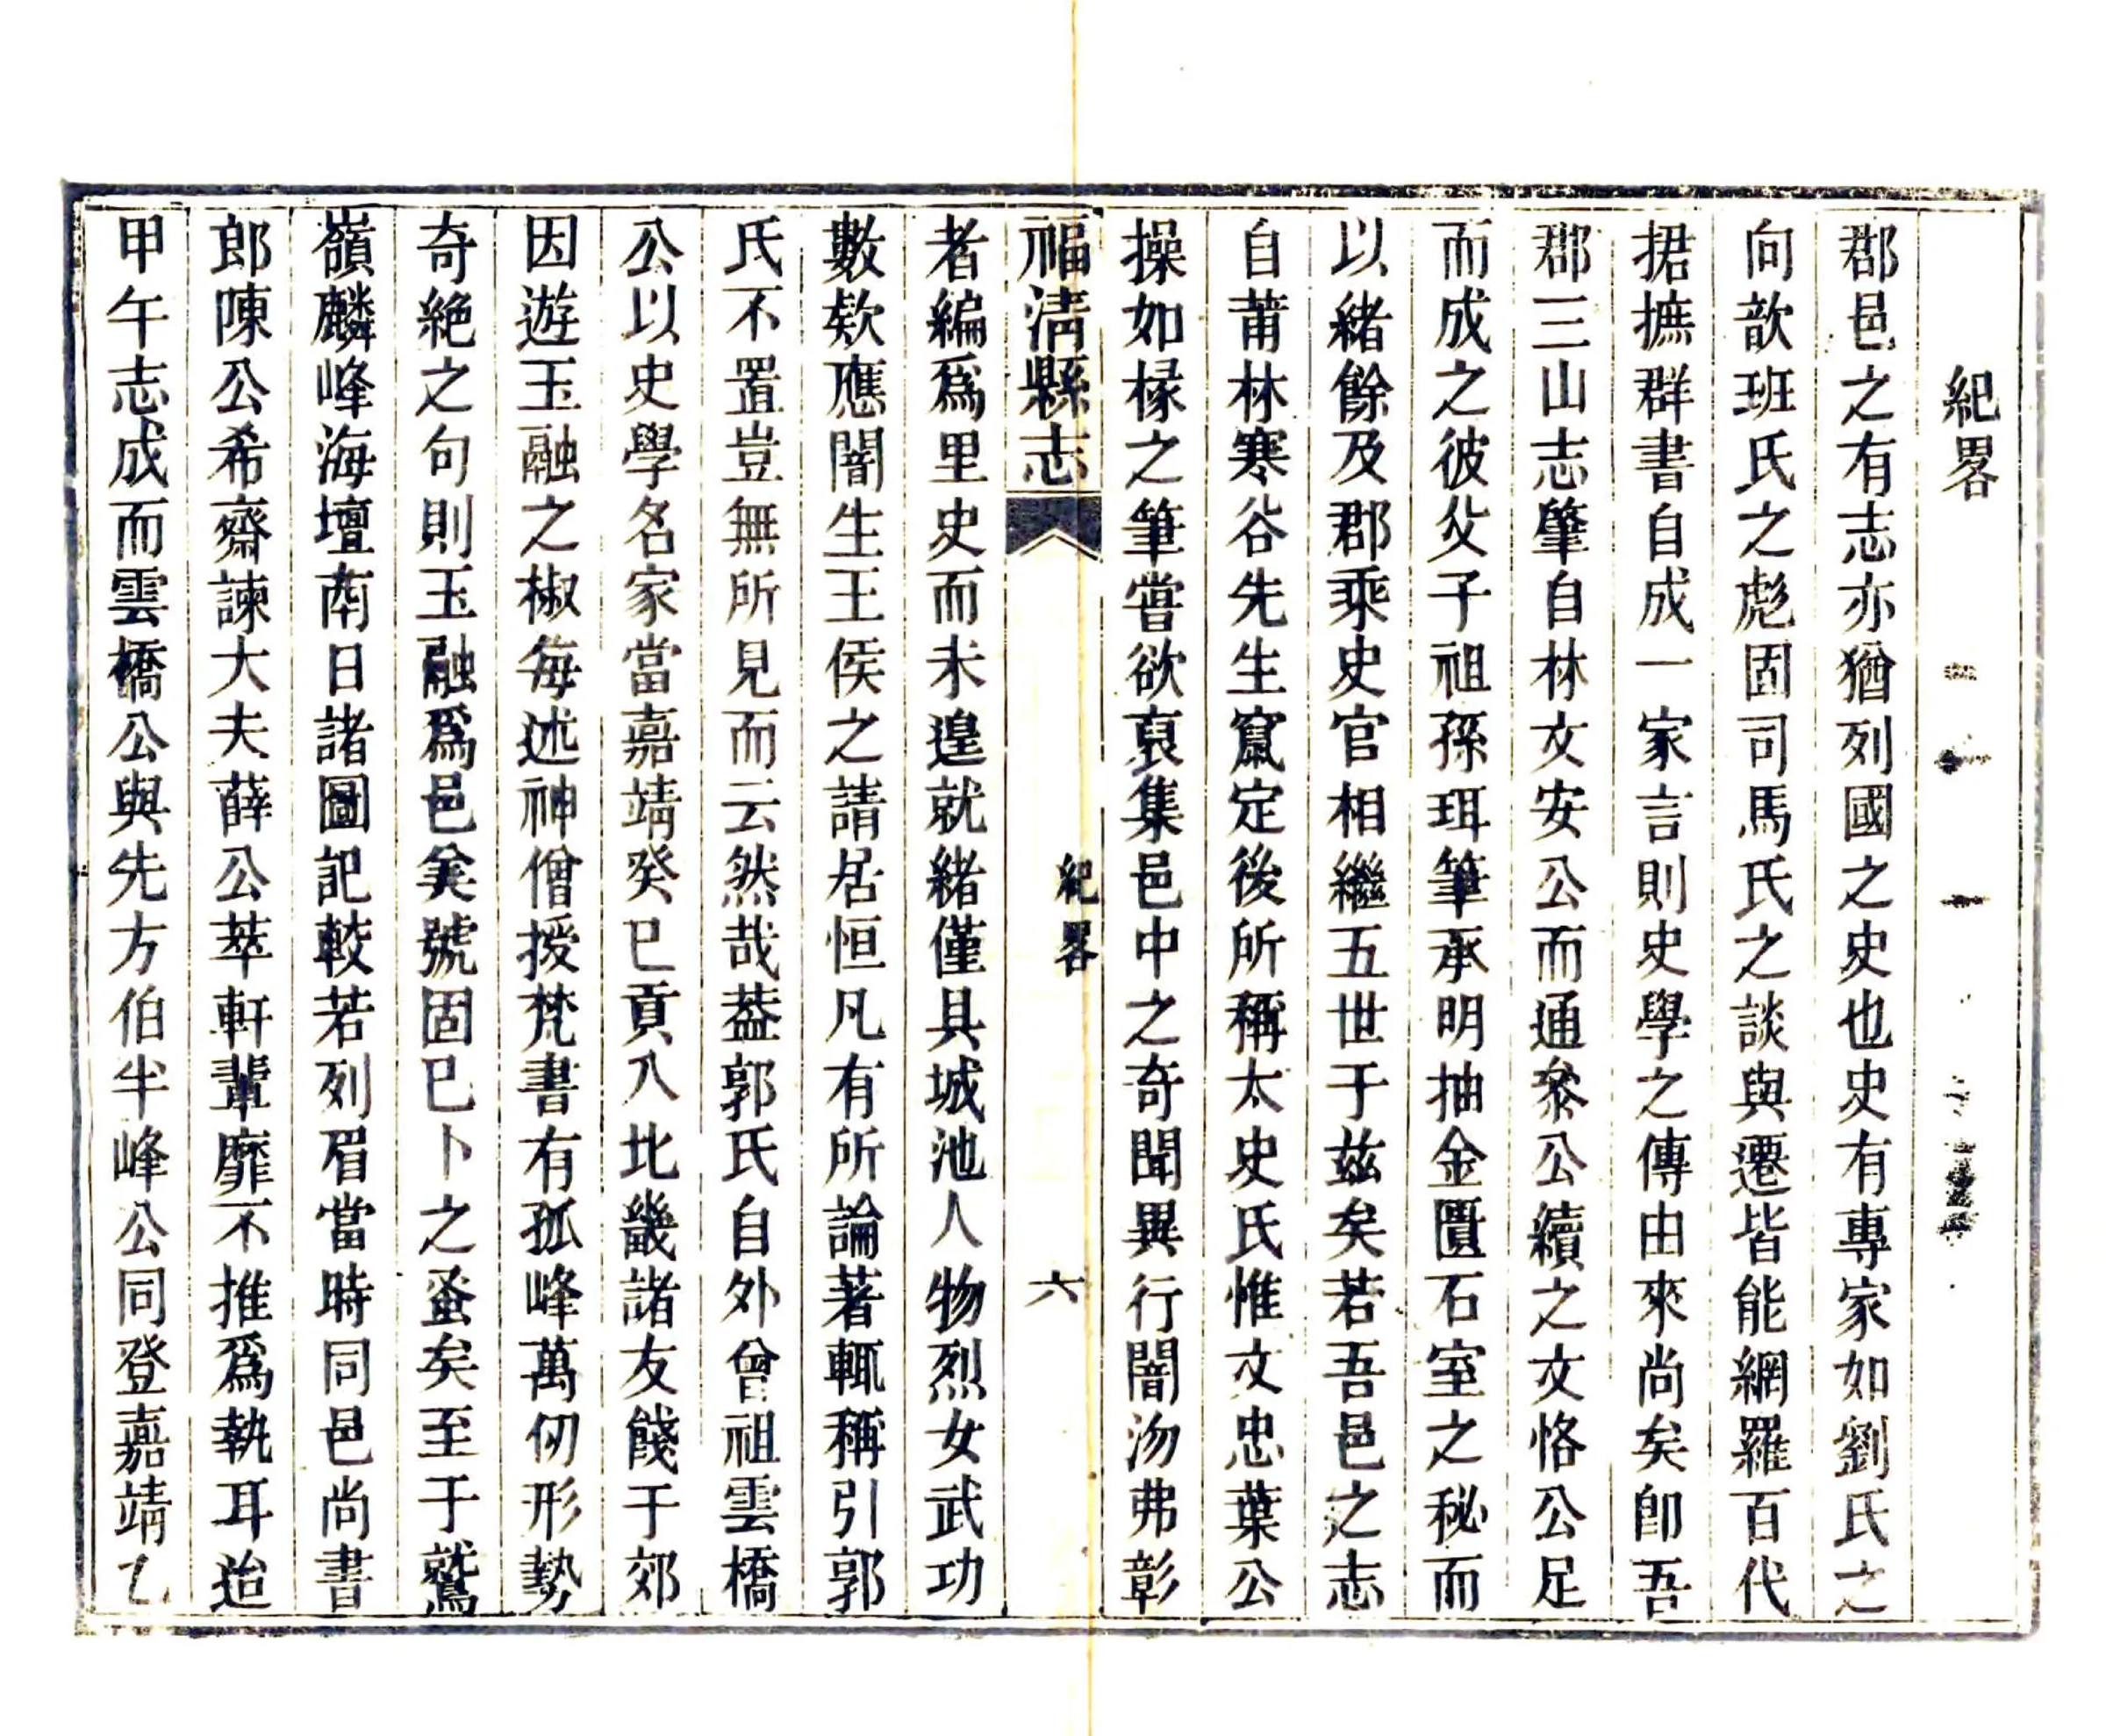 紀畧
郡邑之有志亦猶列國之史也史有專家如劉氏之
向歆班氏之彪固司馬氏之談與遷皆能網羅百代
捃摭群書自成一家言則史學之傳由來尚矣卽吾
郡三山志肇自林文安公而通叅公續之文恪公足
而成之彼父子祖孫珥筆承明抽金匱石室之秘而
以緒餘及郡乘史官相繼五世于兹矣若吾邑之志
自莆林寒谷先生竄定後所稱太史氏惟文忠葉公
操如椽之筆嘗欲裒集邑中之奇聞異行闇沕弗彰
福清縣志
紀畧
六
者編爲里史而未遑就緒僅具城池人物烈女武功
數欵應闇生王侯之請居恒凡有所論著輒稱引郭
氏不置豈無所見而云然哉葢郭氏自外曾祖雲橋
公以史學名家當嘉靖癸巳貢入北畿諸友餞于郊
因遊玉融之椒每述神僧授梵書有孤峰萬仞形勢
奇絶之句則玉融爲邑美號固已卜之蚤矣至于鷲
嶺麟峰海壇南日諸圖記較若列眉當時同邑尚書
郎陳公希齋諫大夫薛公萃軒輩靡不推爲執耳迨
甲午志成而雲橋公與先方伯半峰公同登嘉靖乙